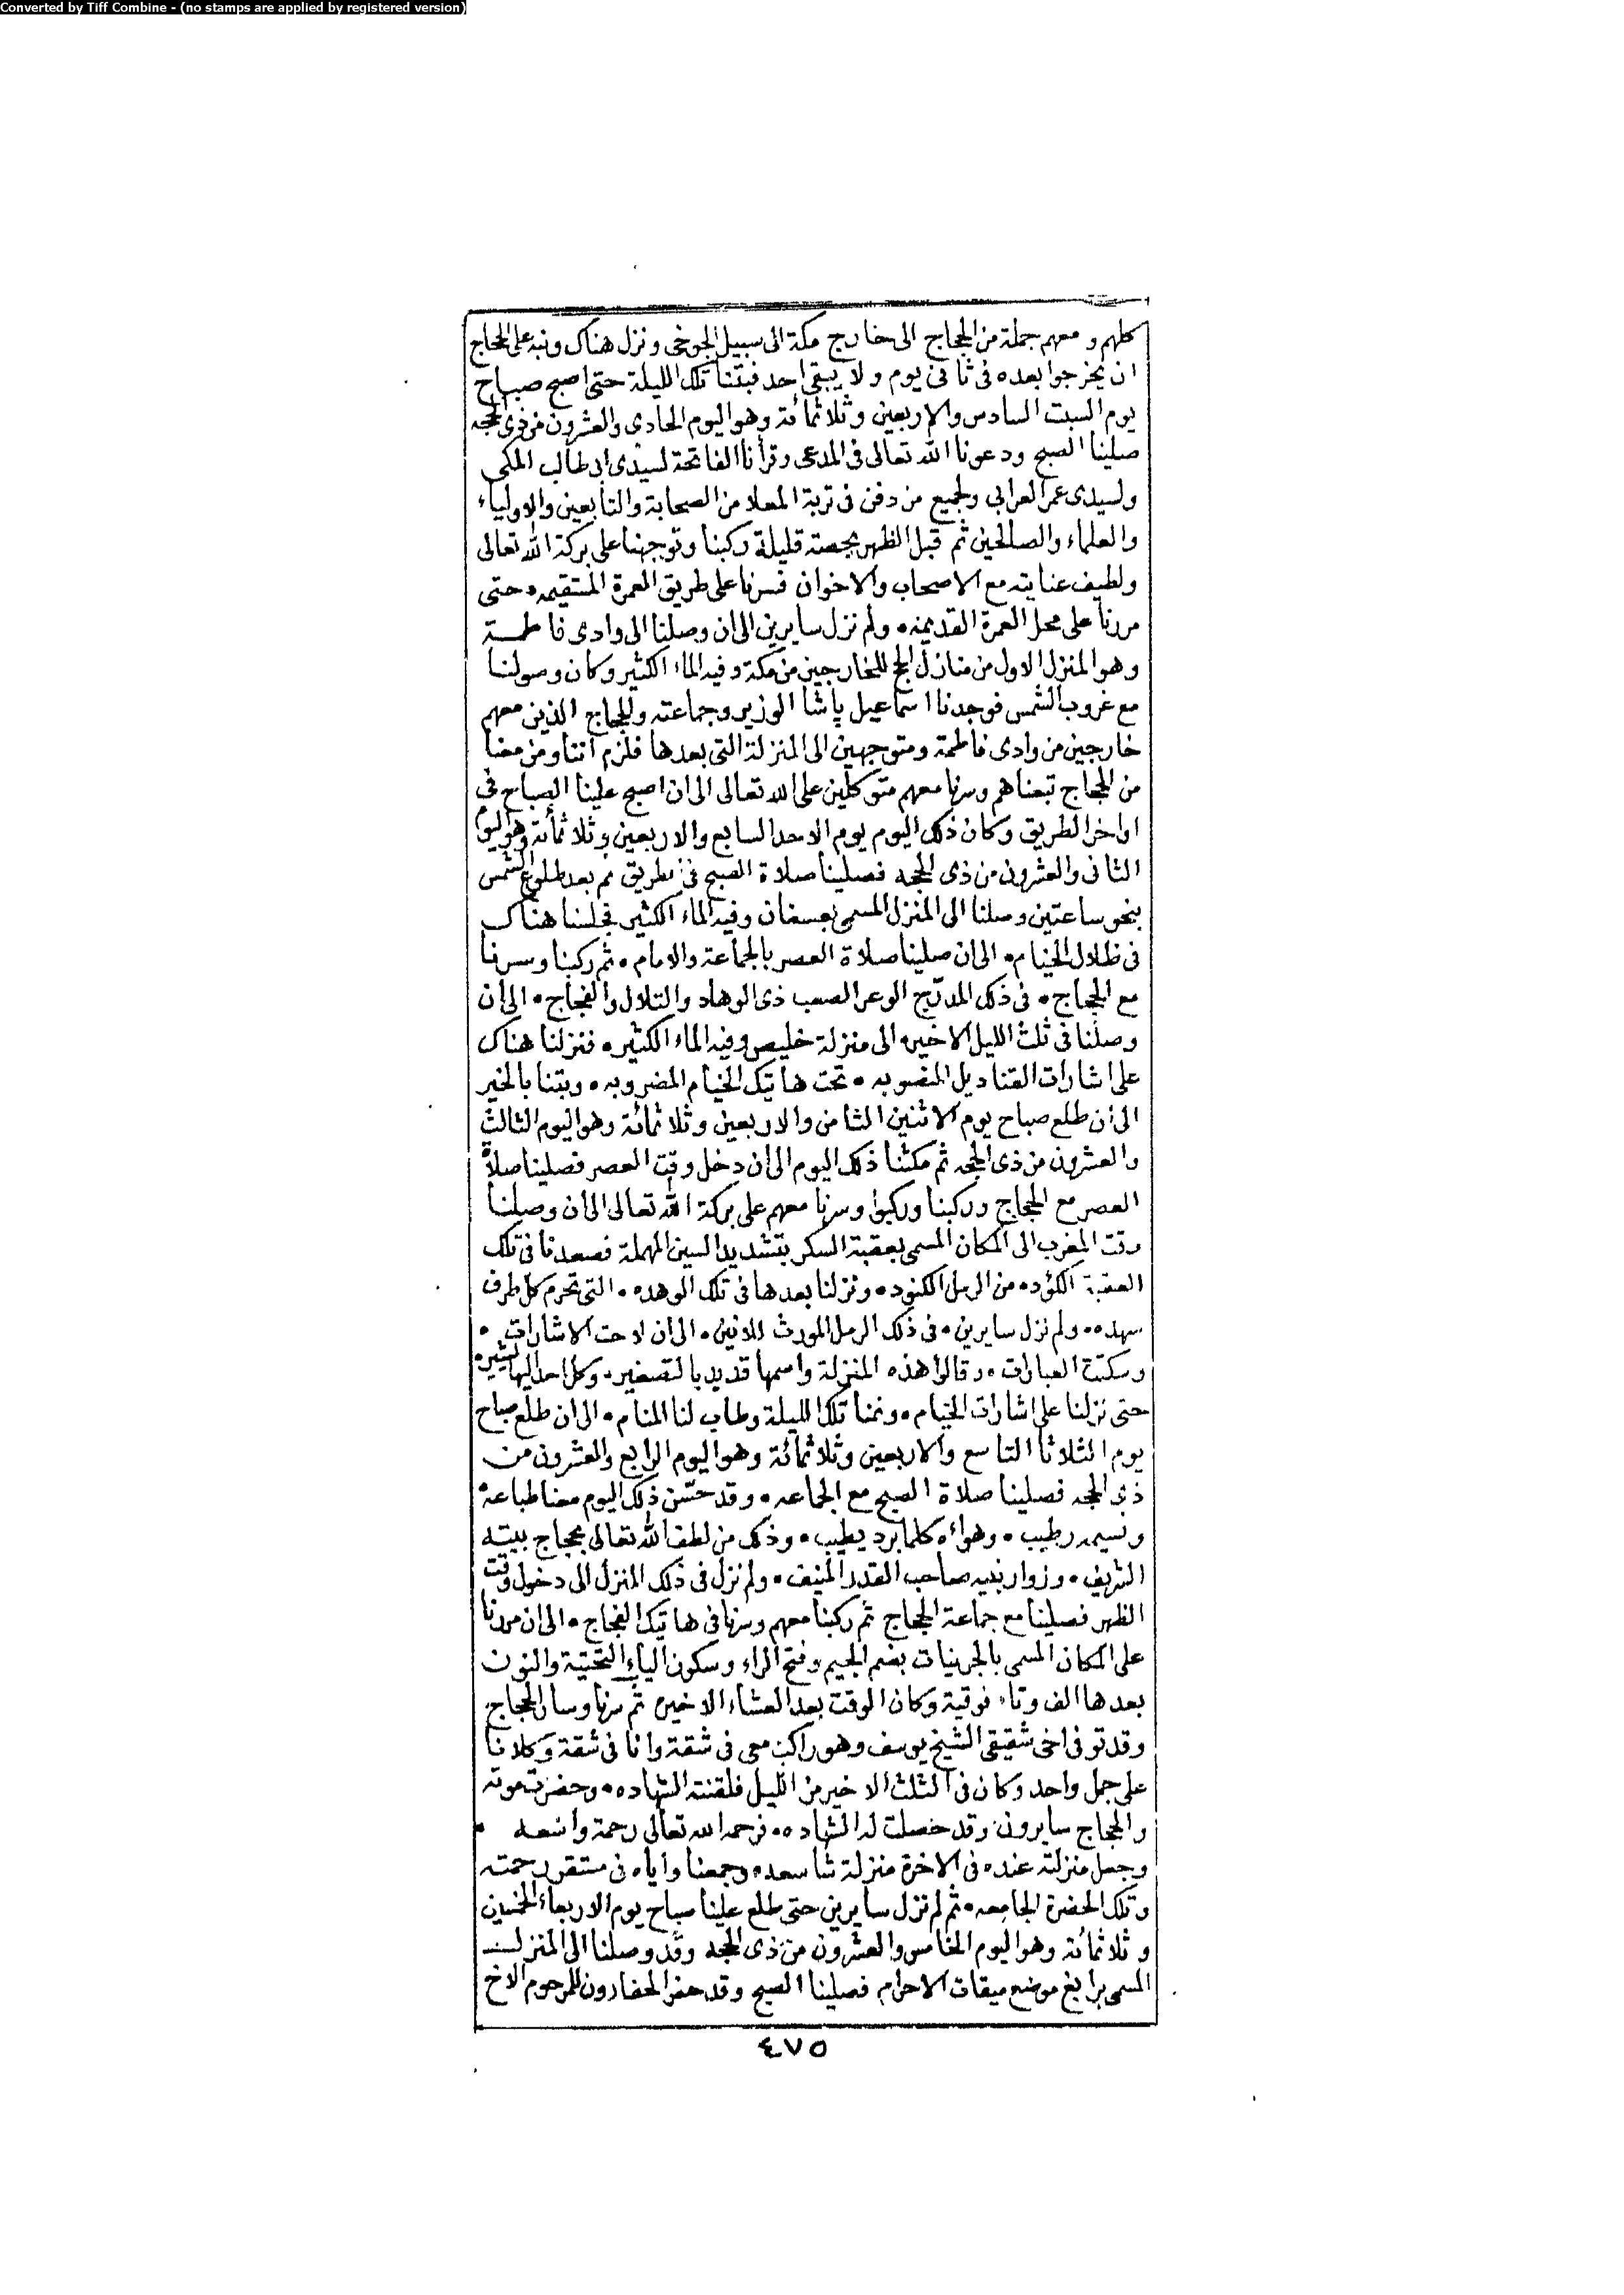 Converted by Tiff Combine - (no stamps are applied by registered version)
كلهم و معهم جملة من الحجاج الى خارج مكة الى سبيل الجوخى ونزل هناك ونبه على الحجاج
ان يخرجوا بعده فى ثانى يوم ولا يبقى احد فبتنا تلك الليلة حتى اصبح صباح
يوم السبت السادس والاربعين وثلاثمائة وهو اليوم الحادى والعشرون من ذى الحجه
صلينا الصبح ودعونا الله تعالى فى المدعى وقرأنا الفاتحة لسيدى ابى طالب المكى
ولسيدى عمر العرابى ولجميع من دفن فى تربة المعلا من الصحابة والتابعين والاولياء
والعلماء والصالحين ثم قبل الظهر بحصة قليلة ركبنا وتوجهنا على بركة الله تعالى
ولطيف عنايته مع الاصحاب والاخوان فسرنا على طريق العمرة المستقيمه حتى
مررنا على محل العمرة القديمه ولم نزل سايرين الى ان وصلنا الى وادى فاطمة
وهو المنزل الاول من منازل الحج للخارجين من مكة وفيه الماء الكثير وكان وصولنا
مع غروب الشمس فوجدنا اسماعيل باشا الوزير وجماعته والحجاج الذين معهم
خارجين من وادى فاطمة ومتوجهين الى المنزلة التى بعدها فلزم اننا ومن معنا
من الحجاج تبعناهم وسرنا معهم متوكلين على الله تعالى الى ان اصبح علينا الصباح فى
اواخر الطريق وكان ذلك اليوم يوم الاحد السابع والاربعين وثلاثمائة وهو اليوم
الثانى والعشرون من ذى الحجه فصلينا صلاة الصبح فى الطريق ثم بعد طلوع الشمس
بنحو ساعتين وصلنا الى المنزل المسمى بعسفان وفيه الماء الكثير فجلسنا هناك
فى ظلال الخيام • الى ان صلينا صلاة العصر بالجماعة والامام • ثم ركبنا وسرنا
مع الحجاج • فى ذلك المدرّج الوعر الصعب ذى الوهاد والتلال والفجاج • الى ان
وصلنا فى ثلث الليل الاخير الى منزلة خليص وفيه الماء الكثير • فنزلنا هناك
على اشارات القناديل المنصوبه • تحت هاتيك الخيام المضروبه • وبتنا بالخير
الى ان طلع صباح يوم الاثنين الثامن والاربعين وثلاثمائة وهو اليوم الثالث
والعشرون من ذى الحجه ثم مكثنا ذلك اليوم الى ان دخل وقت العصر فصلينا صلاة
العصر مع الحجاج وركبنا وركبوا وسرنا معهم على بركة الله تعالى الى ان وصلنا
وقت المغرب الى المكان المسمى بعقبة السكر بتشديد السين المهملة فصعدنا فى تلك
العقبة الكؤده من الرمل الكنود • ونزلنا بعدها فى تلك الوهده • التى تحرم كل طرف
سهده • ولم نزل سايرين • فى ذلك الرمل المورث للانين • الى ان لاحت الاشارات •
وسكتت العبارات • وقالوا هذه المنزلة واسمها قديد بالتصغير • وكل احد اليها يشير •
حتى نزلنا على اشارات الخيام • ونمنا تلك الليلة وطاب لنا المنام • الى ان طلع صباح
يوم الثلاثا التاسع والاربعين وثلاثمائة وهو اليوم الرابع والعشرون من
ذى الحجه فصلينا صلاة الصبح مع الجماعه • وقد حسّن ذلك اليوم معنا طباعه
ونسيمه رطيب • وهواءه كلما برد يطيب • وذلك من لطف الله تعالى بحجاج بيته
الشريف • وزوار نبيه صاحب القدر المنيف • ولم نزل فى ذلك المنزل الى دخول وقت
الظهر فصلينا مع جماعة الحجاج ثم ركبنا معهم وسرنا فى هاتيك الفجاج • الى ان مررنا
على المكان المسمى بالجرينات بضم الجيم وفتح الراء وسكون الياء التحتية والنون
بعدها الف وتاء فوقية وكان الوقت بعد العشاء الاخير ثم سرنا وسار الحجاج
وقد توفى اخى شقيقى الشيخ يوسف وهو راكب معى فى شقة وانا فى شقة وكلانا
على جمل واحد وكان فى الثلث الاخير من الليل فلقنته الشهاده • وحضرت موته
والحجاج سايرون وقد حصلت له الشهاده • فرحمه الله تعالى رحمة واسعه •
وجعل منزلته عنده فى الاخرة منزلة شاسعه وجمعنا واياه فى مستقر رحمته
وتلك الحضرة الجامعه • ثم لم نزل سايرين حتى طلع علينا صباح يوم الاربعاء الخمسين
وثلاثمائة وهو اليوم الخامس والعشرون من ذى الحجه وقد وصلنا الى المنزل
المسمى برابغ موضع ميقات الاحرام فصلينا الصبح وقد حفر الحفارون للمرحوم الاخ
٤٧٥